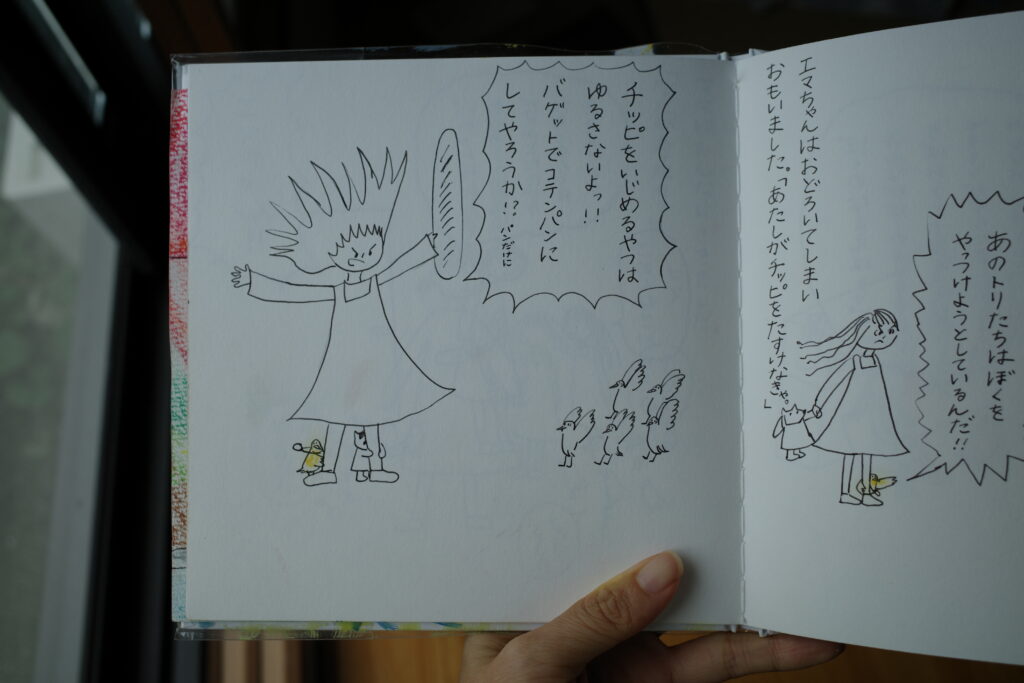 あのトリたちはぼくを
やっつけようとしているんだ!!
エマちゃんはおどろいてしまい
おもいました。「あたしがチッピをたすけなきゃ。」
チッピをいじめるやつは
ゆるさないよっ!!
バゲットでコテンパンに
してやろうか!? パンだけに